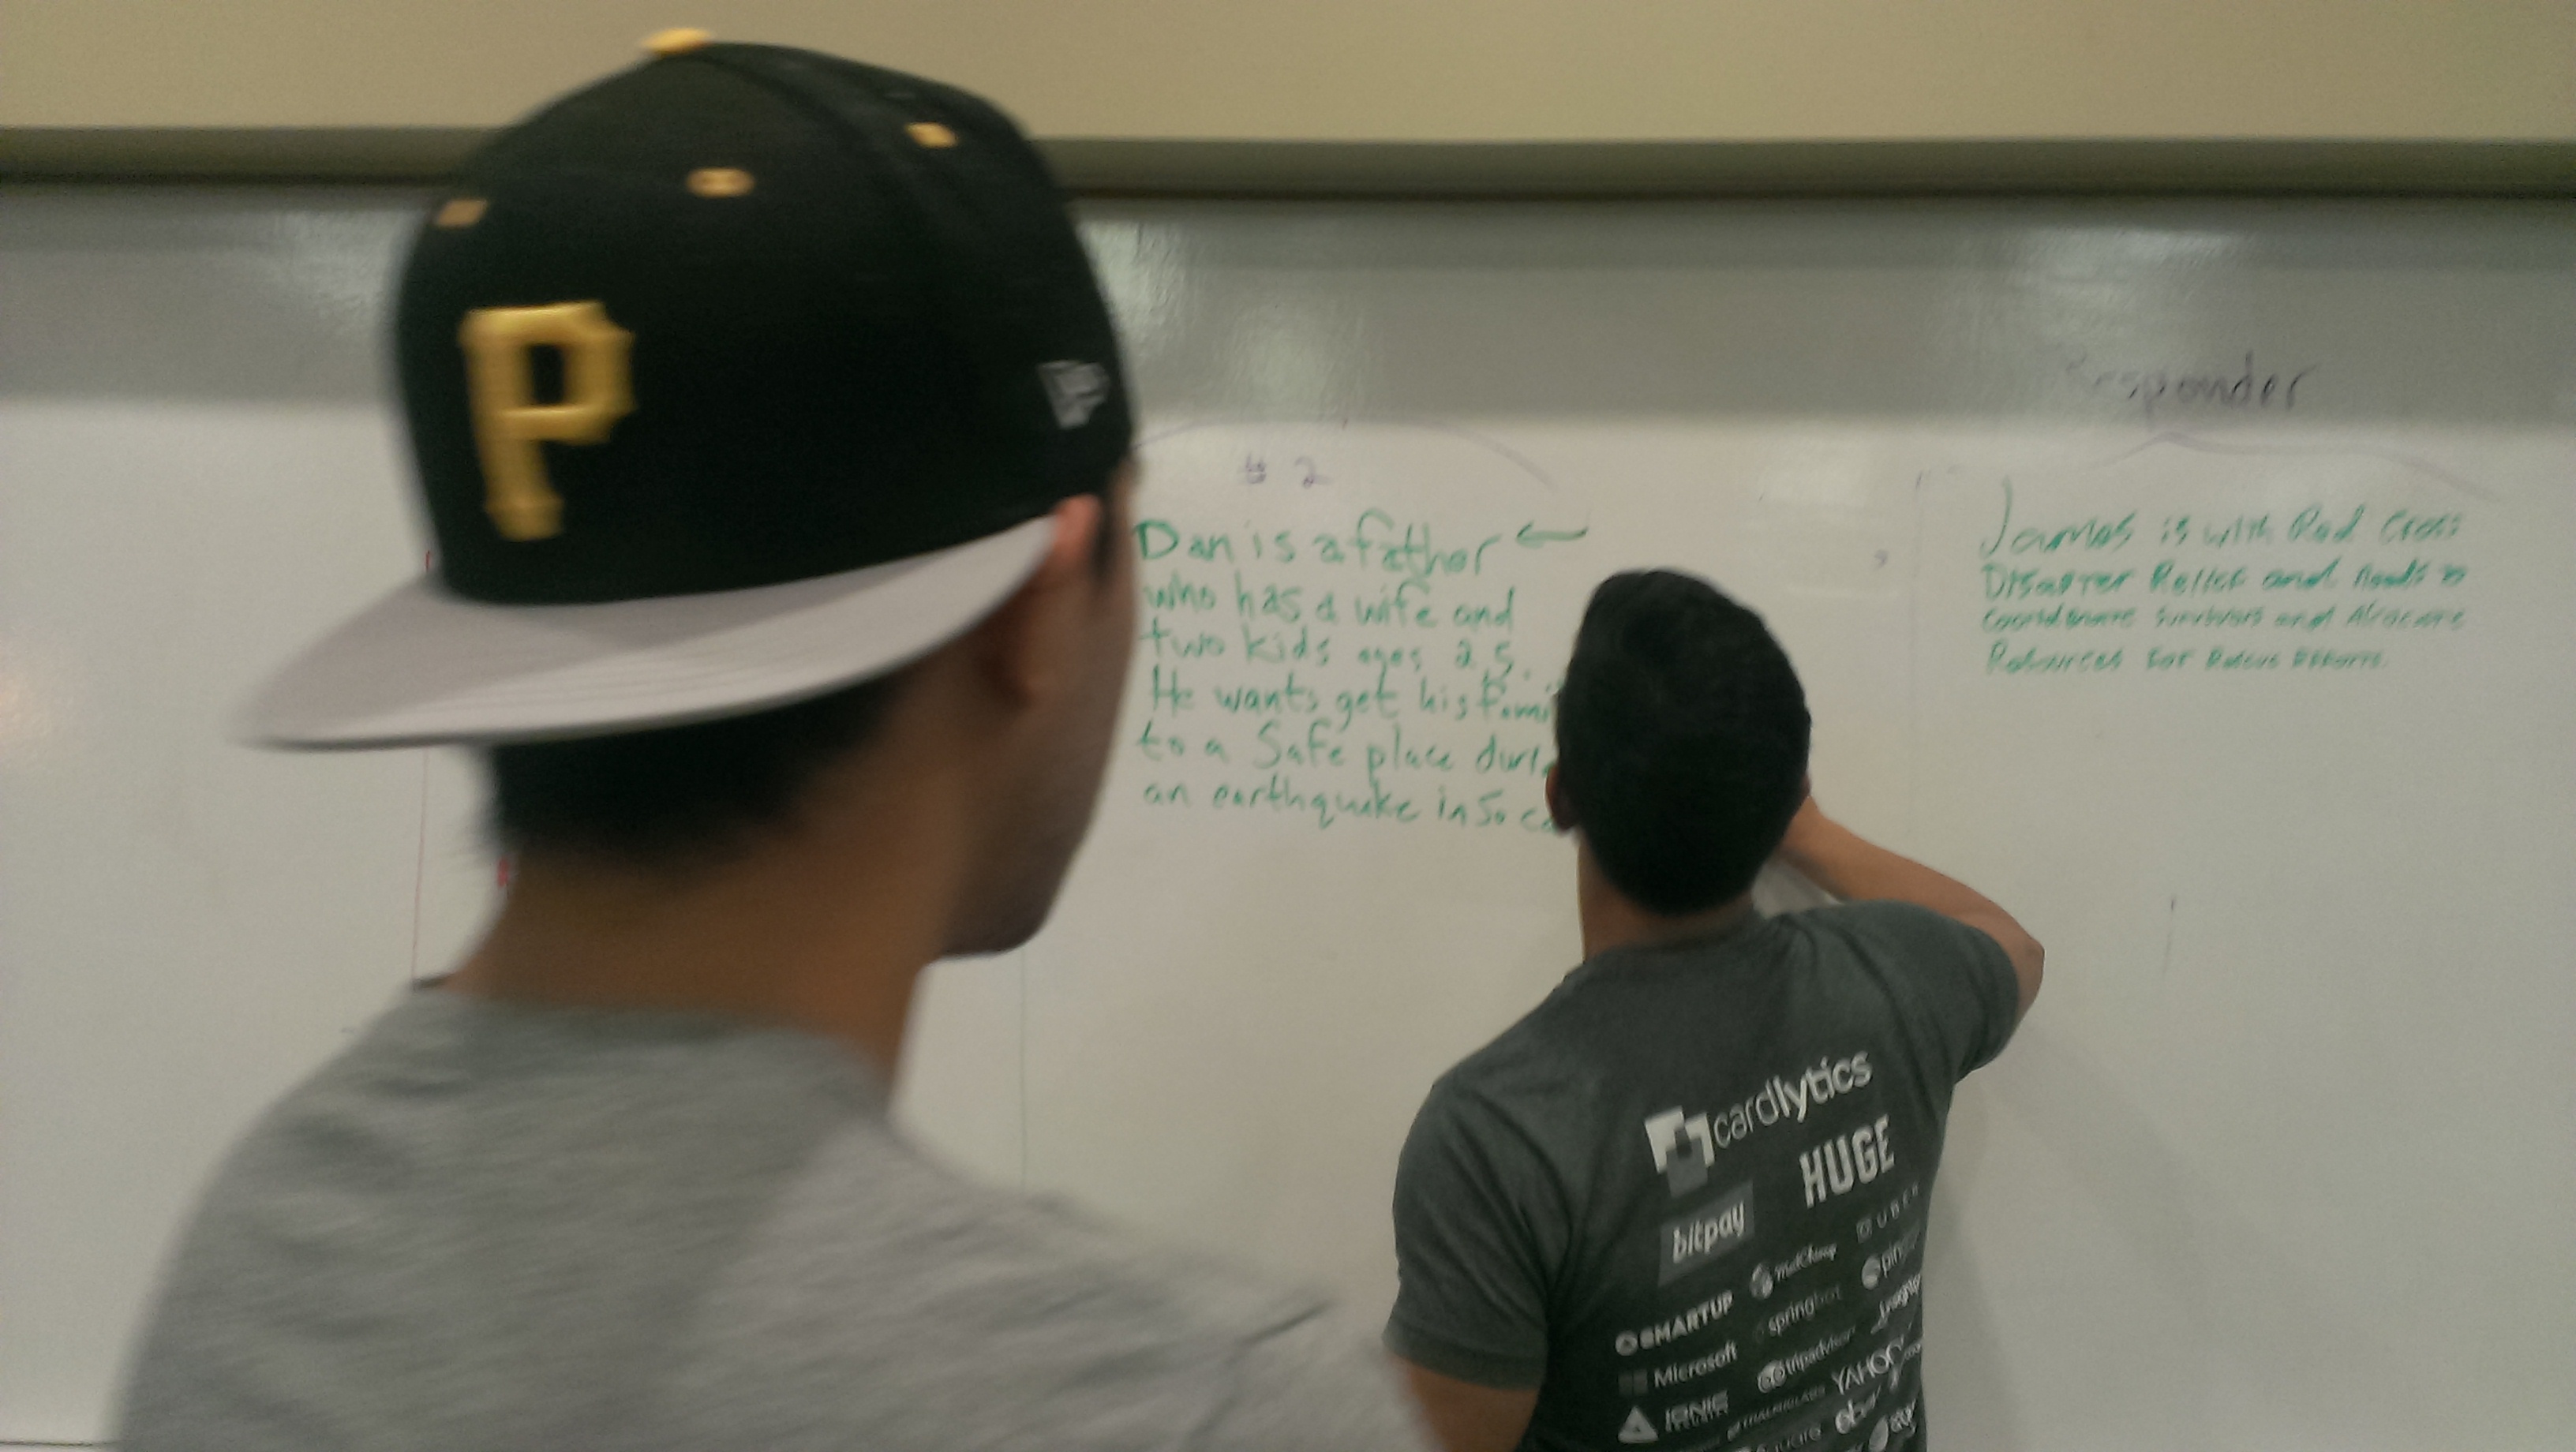 P
Responder
# 2
Dan is a father
who has a wife and
two kids ages 2,5.
He wants get his
to a Safe place
an earthquake in So
James is with Red Cross
Disaster Relief and needs to
Coordinate Survivors and
Resources for Rescue Efforts.
cardlytics
HUGE
bitpay
UBER
MailChimp
SMARTUP
springbot
Microsoft
tripadvisor
YAHOO!
IONIC
SECURITY
ebay